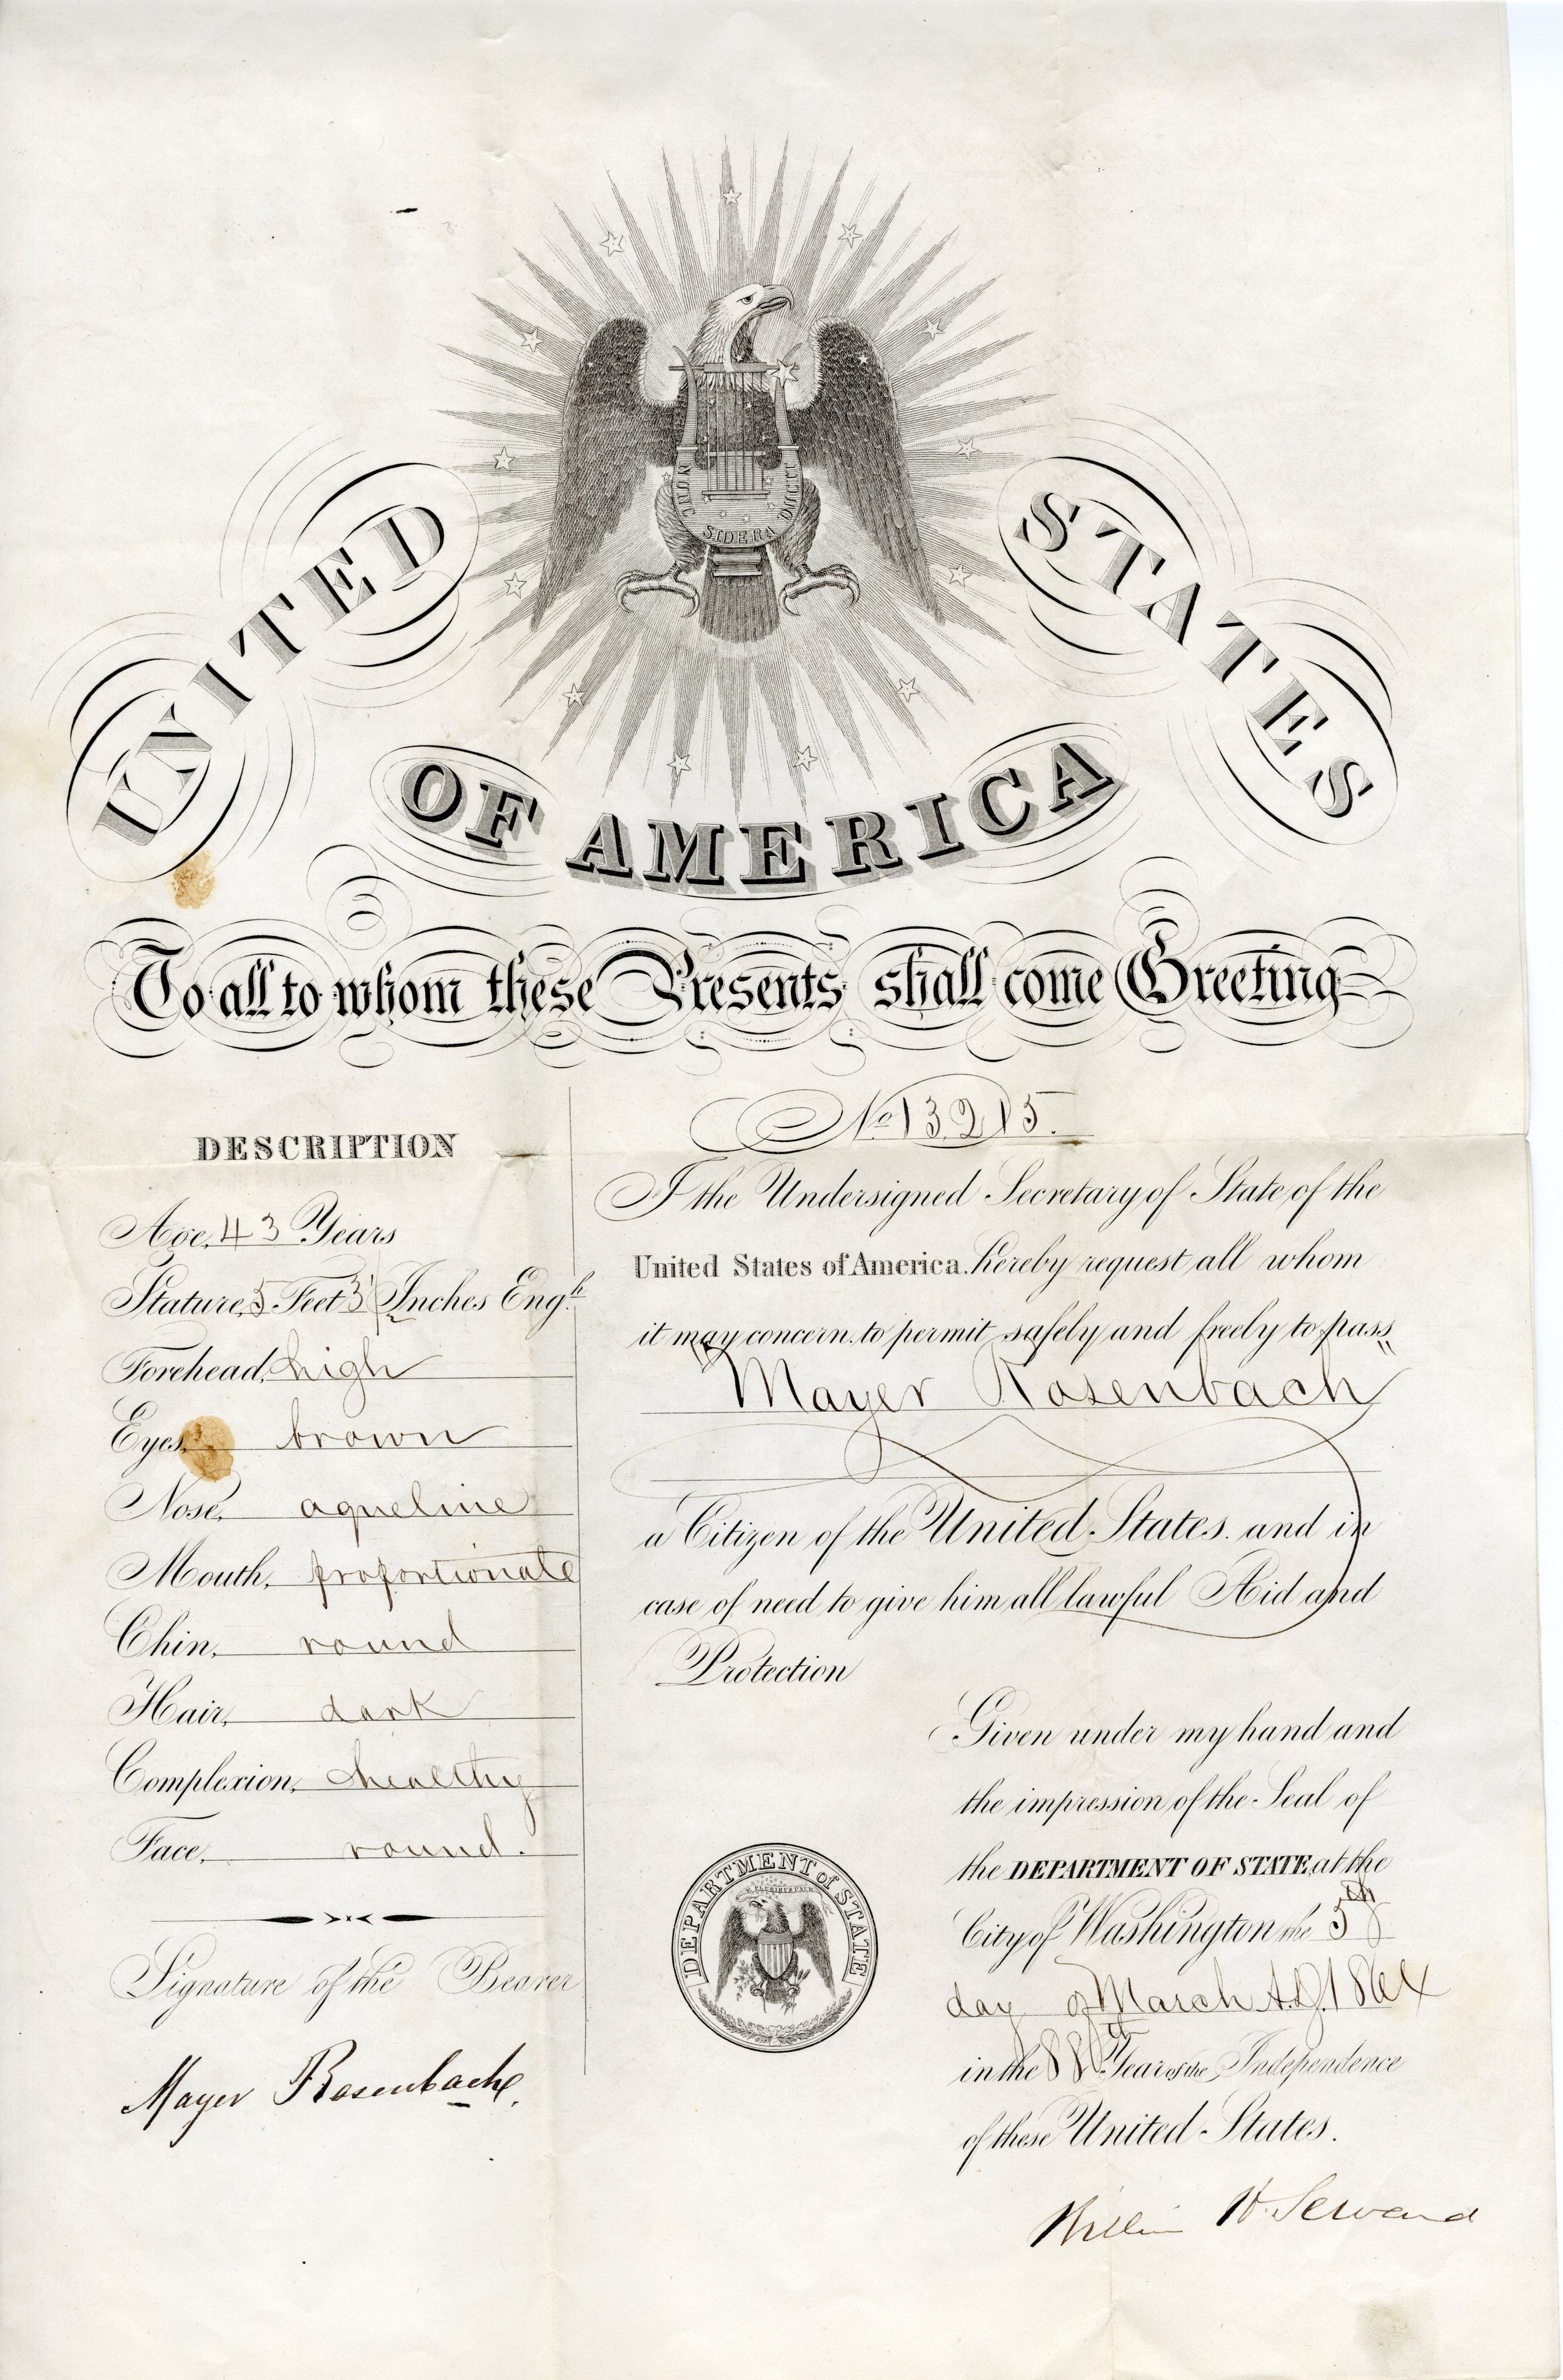 NUNC SIDERA DUCIT
UNITED STATES
OF AMERICA
To all to whom these Presents shall come Greeting
DESCRIPTION
Age, 43 Years
Stature, 5 Feet 3 Inches Engh.
Forehead, high
Eyes, brown
Nose, aqueline
Mouth, proportionate
Chin, round
Hair, dark
Complexion, healthy
Face, round.
Signature of the Bearer
Mayer Rosenbach.
No 13215.
I the Undersigned Secretary of State of the
United States of America. hereby request all whom
it may concern. to permit safely and freely to pass
Mayer Rosenbach
a Citizen of the United States. and in
case of need to give him all lawful Aid and
Protection
Given under my hand and
the impression of the Seal of
the DEPARTMENT OF STATE, at the
City of Washington the 5th
day of March A.D. 1864
in the 88th Year of the Independence
of these United States.
William H. Seward
DEPARTMENT of STATE